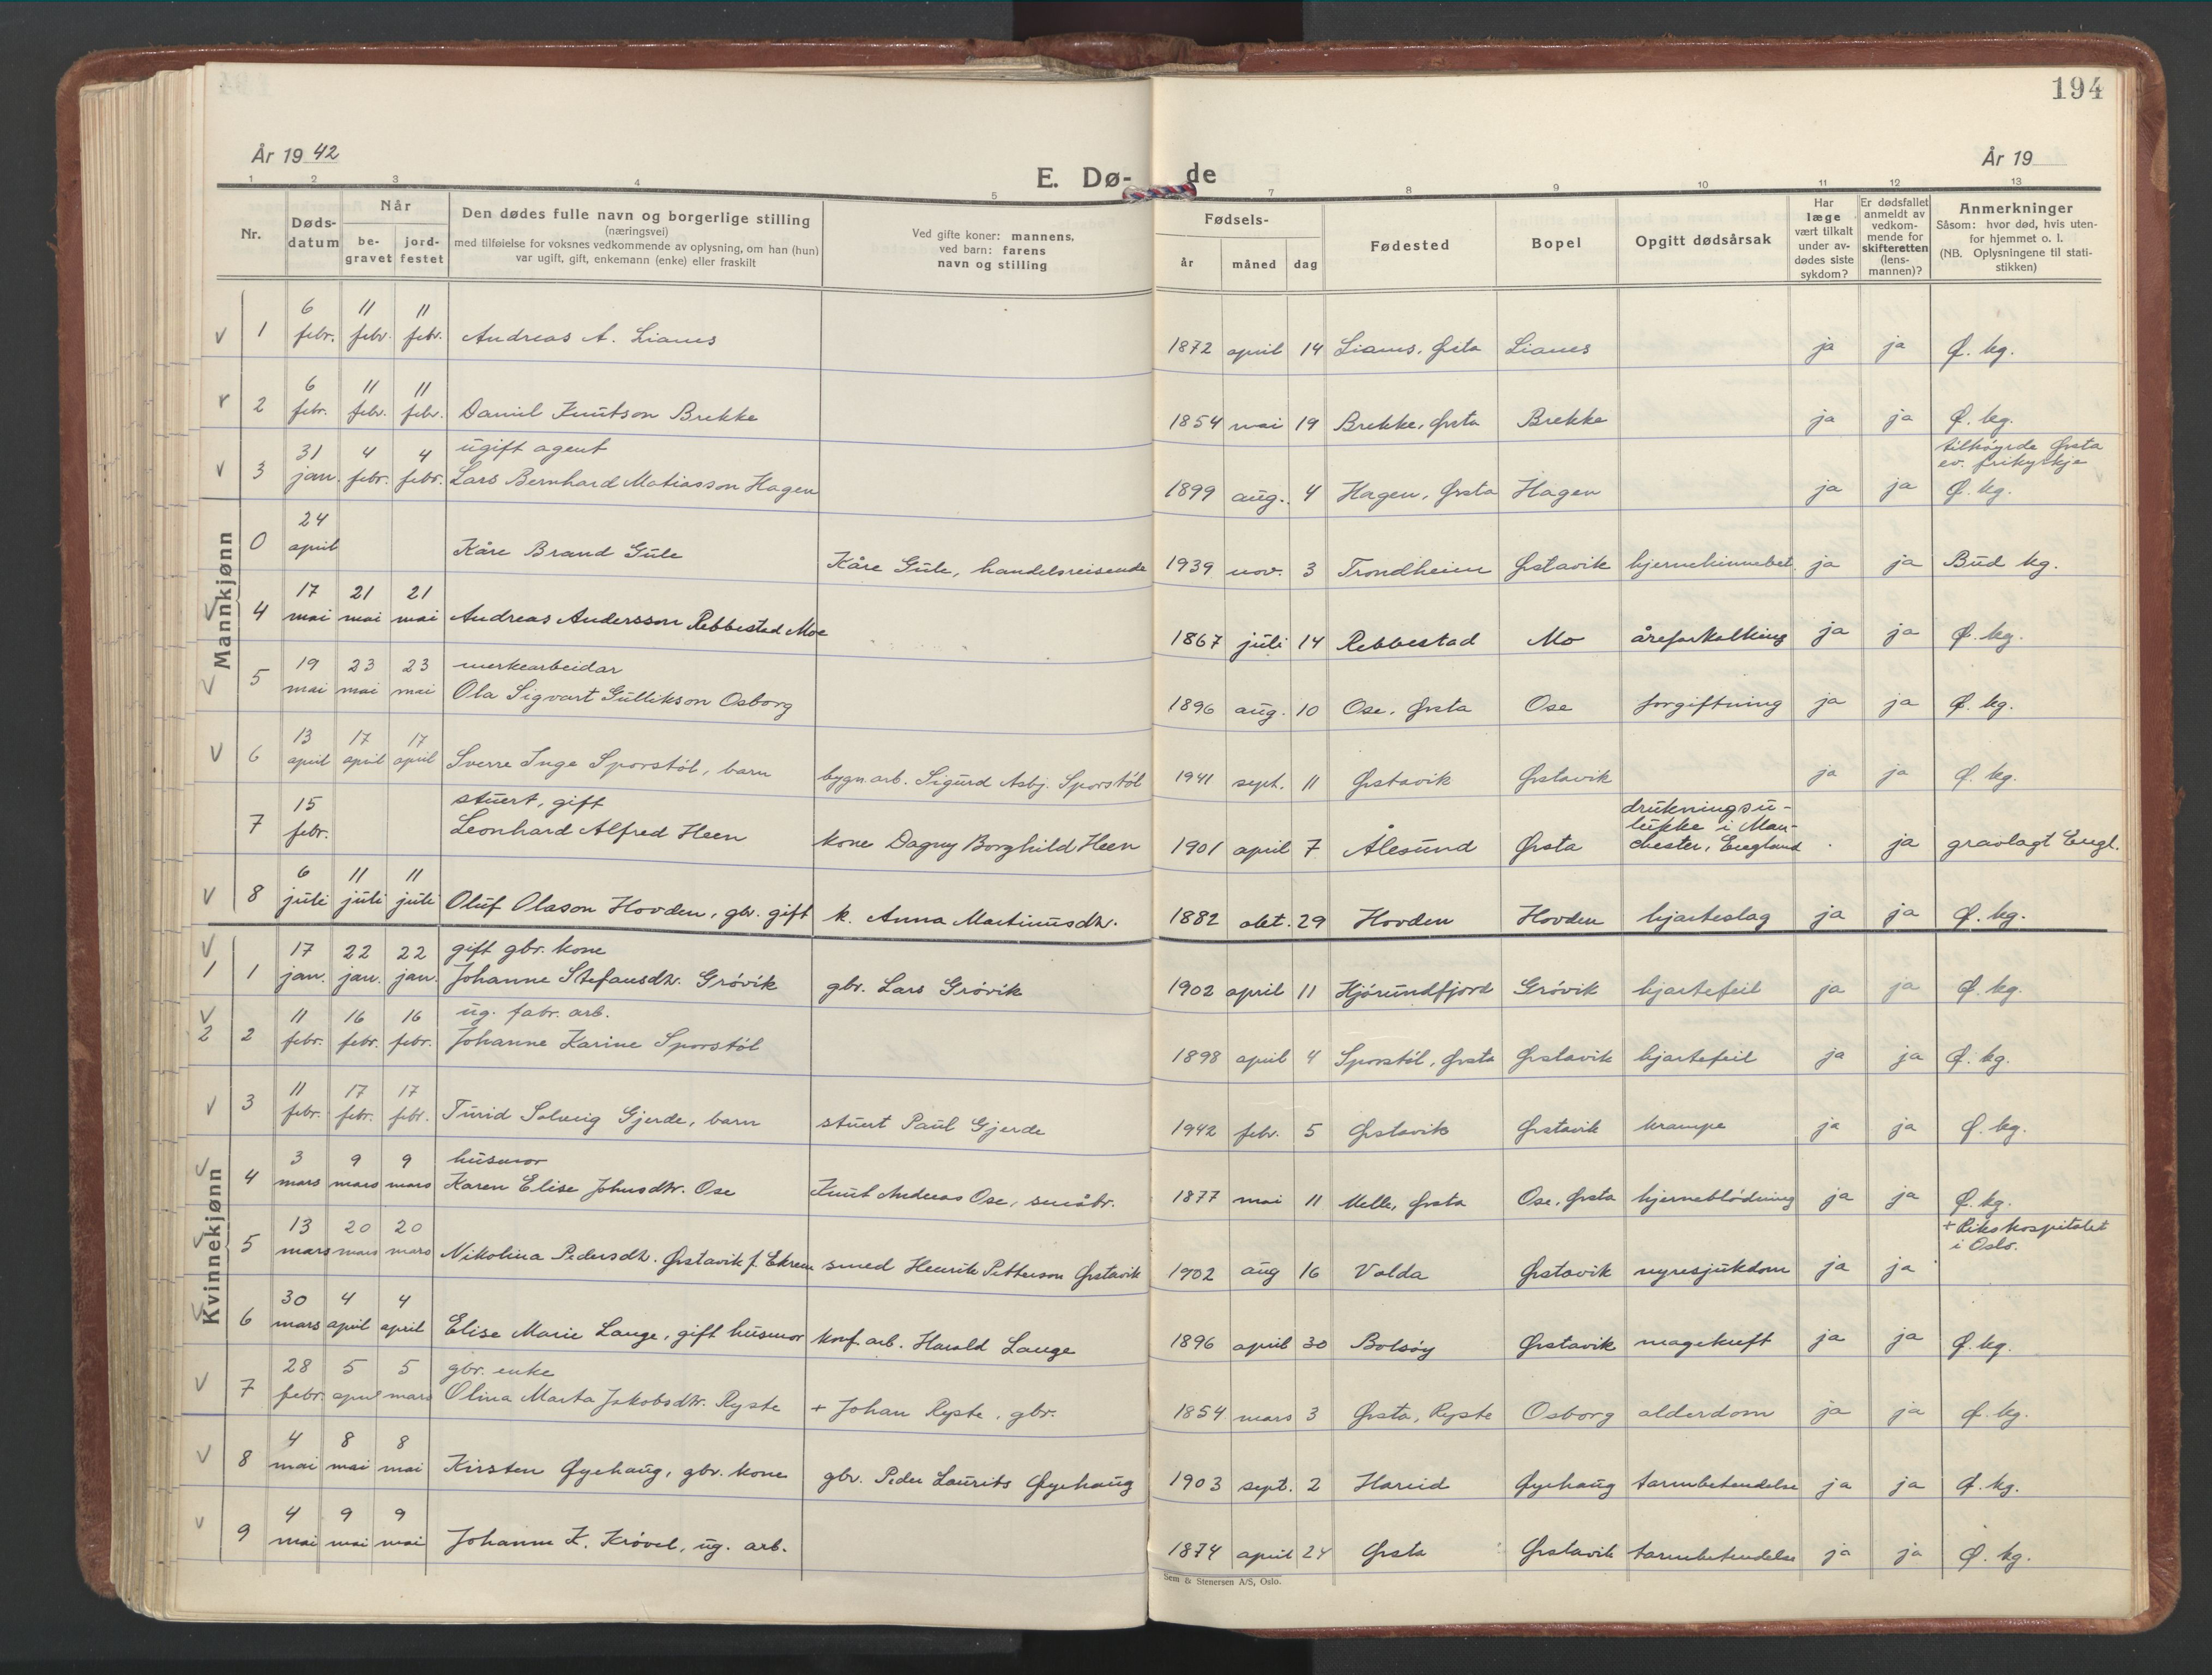 194
År 19 42
E. Dø-
de
År 19
1 2 3 4 5 7 8 9 10 11 12 13
Nr.
Døds-
datum
Når
be-
gravet
jord-
festet
Den dødes fulle navn og borgerlige stilling
(næringsvei)
med tilføielse for voksnes vedkommende av oplysning, om han (hun)
var ugift, gift, enkemann (enke) eller fraskilt
Ved gifte koner: mannens,
ved barn: farens
navn og stilling
Fødsels-
år måned dag
Fødested
Bopel
Opgitt dødsårsak
Har
læge
vært tilkalt
under av-
dødes siste
sykdom?
Er dødsfallet
anmeldt av
vedkom-
mende for
skifteretten
(lens-
mannen)?
Anmerkninger
Såsom: hvor død, hvis uten-
for hjemmet o. l.
(NB. Oplysningene til stati-
stikken)
Mannkjønn
6 11 11
v 1 febr. febr. febr. Andreas A. Lianes 1872 april 14 Lianes, Ørsta Lianes ja ja Ø. kg.
6 11 11
v 2 febr. febr. febr. Daniel Knutson Brekke 1854 mai 19 Brekke, Ørsta Brekke ja ja Ø. kg.
31 4 4 ugift agent tilhøyrde Ørsta
ev. frikyrkje
v 3 jan. febr. febr. Lars Bernhard Matiasson Hagen 1899 aug. 4 Hagen, Ørsta Hagen ja ja Ø. kg.
24
0 april Kåre Brand Gule Kåre Gule, handelsreisende 1939 nov. 3 Trondheim Ørstavik hjernehinnebet. ja ja Bud kg.
17 21 21
v 4 mai mai mai Andreas Andersson Rebbestad Moe 1867 juli 14 Rebbestad Mo åreforkalking ja ja Ø. kg.
19 23 23 merkearbeidar
v 5 mai mai mai Ola Sigvart Gullikson Osborg 1896 aug. 10 Ose, Ørsta Ose forgiftning ja ja Ø. kg.
13 17 17
v 6 april april april Sverre Inge Sporstøl, barn bygn.arb. Sigurd Asbj. Sporstøl 1941 sept. 11 Ørstavik Ørstavik ja ja Ø. kg.
15 stuert, gift drukningsu-
lukke i Man-
7 febr. Leonhard Alfred Heen kone Dagny Borghild Heen 1901 april 7 Ålesund Ørsta chester, England ja gravlagt Engl.
6 11 11
v 8 juli juli juli Oluf Olason Hovden, gbr. gift k. Anna Martinusdtr. 1882 okt. 29 Hovden Hovden hjarteslag ja ja Ø. kg.
Kvinnekjønn
v 17 22 22 gift gbr. kone
1 1 jan. jan. jan. Johanne Stefansdtr. Grøvik gbr. Lars Grøvik 1902 april 11 Hjørundfjord Grøvik hjartefeil ja ja Ø. kg.
v 11 16 16 ug. fabr. arb.
2 2 febr. febr. febr. Johanne Karine Sporstøl 1898 april 4 Sporstøl, Ørsta Ørstavik hjartefeil ja ja Ø. kg.
11 17 17
v 3 febr. febr. febr. Turid Solveig Gjerde, barn stuert Paul Gjerde 1942 febr. 5 Ørstavik Ørstavik krampe ja ja Ø. kg.
3 9 9 husmor
v 4 mars mars mars Karen Elise Johnsdtr. Ose Knut Andreas Ose, småbr. 1877 mai 11 Melle, Ørsta Ose, Ørsta hjerneblødning ja ja Ø. kg.
13 20 20 + Rikshospitalet
i Oslo.
v 5 mars mars mars Nikolina Pedersdtr. Ørstavik f. Ekrem smed Henrik Petterson Ørstavik 1902 aug 16 Volda Ørstavik nyresjukdom ja ja
30 4 4
v 6 mars april april Elise Marie Lange, gift husmor konf. arb. Harald Lange 1896 april 30 Bolsøy Ørstavik magekreft ja ja Ø. kg.
28 5 5 gbr. enke
v 7 febr. april mars Olina Marta Jakobsdtr. Ryste + Johan Ryste, gbr. 1854 mars 3 Ørsta, Ryste Osborg alderdom ja ja Ø. kg.
4 8 8
v 8 mai mai mai Kirsten Øyehaug, gbr. kone gbr. Peder Laurits Øyehaug 1903 sept. 2 Hareid Øyehaug tarmbetendelse ja ja Ø. kg.
4 9 9
v 9 mai mai mai Johanne K. Krøvel, ug. arb. 1874 april 24 Ørsta Ørstavik tarmbetendelse ja ja Ø. kg.
Sem & Stenersen A/S, Oslo.